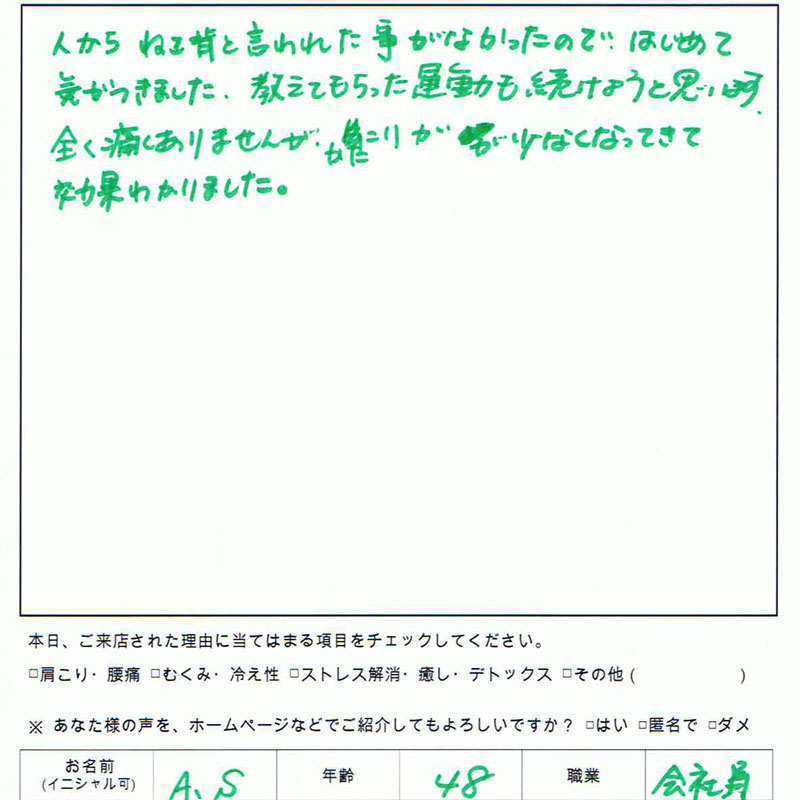 人から ねこ背と言われた事がなかったので、はじめて
気がつきました、教えてもらった運動も続けようと思います、
全く痛くありませんが、かたこりが 少なくなってきて
効果わかりました。
本日、ご来店された理由に当てはまる項目をチェックしてください。
□肩こり・腰痛 □むくみ・冷え性 □ストレス解消・癒し・デトックス □その他 ( )
※ あなた様の声を、ホームページなどでご紹介してもよろしいですか？ □はい □匿名で □ダメ
お名前 A、S 年齢 48 職業 会社員
(イニシャル可)